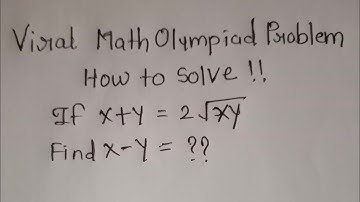 Viral Math Olympiad Problem
How to Solve !!
If x+y = 2√xy
Find x-y = ??